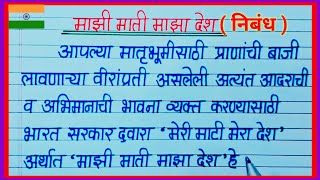 माझी माती माझा देश ( निबंध )
आपल्या मातृभूमीसाठी प्राणांची बाजी
लावणाऱ्या वीरांप्रती असलेली अत्यंत आदराची
व अभिमानाची भावना व्यक्त करण्यासाठी
भारत सरकार द्वारा 'मेरी माटी मेरा देश'
अर्थात 'माझी माती माझा देश' हे